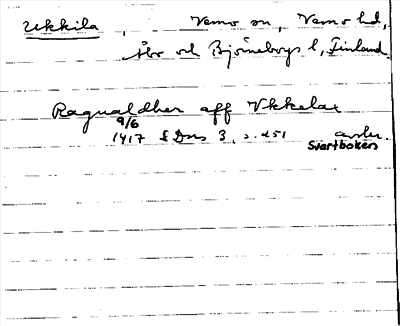 Ukkila, Vemo sn, Vemo hd,
Åbo och Björneborgs l, Finland
Ragualdher aff Vkkelax
9/6
1417 SDns 3, s. 251 avskr.
Svartboken